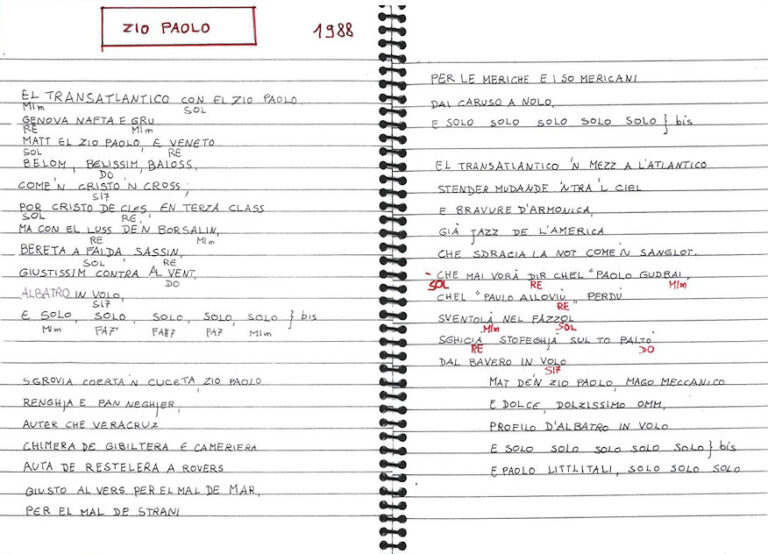 ZIO PAOLO
1988
EL TRANSATLANTICO CON EL ZIO PAOLO.
MIm SOL
GENOVA NAFTA E GRU
RE MIm
MATT EL ZIO PAOLO, E VENETO
SOL RE
BELOM, BELISSIM, BALOSS,
DO
COME'N CRISTO'N CROSS;
SI7
POR CRISTO DE CLES EN TERZA CLASS
SOL RE
MA CON EL LUSS DE'N BORSALIN,
RE MIm
BERETA A FALDA SASSIN,
SOL RE
GIUSTISSIM CONTRA AL VENT,
DO
ALBATRO IN VOLO,
SI7
E SOLO, SOLO, SOLO, SOLO, SOLO } bis
MIm FA7 FA#7 FA7 MIm
SGROVIA COERTA'N CUCETA, ZIO PAOLO
RENGHJA E PAN NEGHJER,
AUTER CHE VERACRUZ
CHIMERA DE GIBILTERA E CAMERIERA
AUTA DE RESTELERA A ROVERS
GIUSTO AL VERS PER EL MAL DE MAR,
PER EL MAL DE STRANI
PER LE MERICHE E I SO MERICANI
DAL CARUSO A NOLO,
E SOLO SOLO SOLO SOLO SOLO } bis
EL TRANSATLANTICO 'N MEZZ A L'ATLANTICO
STENDER MUDANDE 'NTRA 'L CIEL
E BRAVURE D'ARMONICA,
GIÀ JAZZ DE L'AMERICA
CHE SDRACIA LA NOT COME'N SANGLOT.
- CHE MAI VORÀ DIR CHEL "PAOLO GUDBAI,
SOL RE MIm
CHEL "PAULO AILOVIÙ" PERDÙ
RE
SVENTOLÀ NEL FAZZOL
MIm SOL
SGHICIÀ STOFEGHJÀ SUL TO PALTÒ
RE DO
DAL BAVERO IN VOLO
SI7
MAT DE'N ZIO PAOLO, MAGO MECCANICO
E DOLCE, DOLZISSIMO OMM,
PROFILO D'ALBATRO IN VOLO
E SOLO SOLO SOLO SOLO SOLO } bis
E PAOLO LITTLITALI, SOLO SOLO SOLO